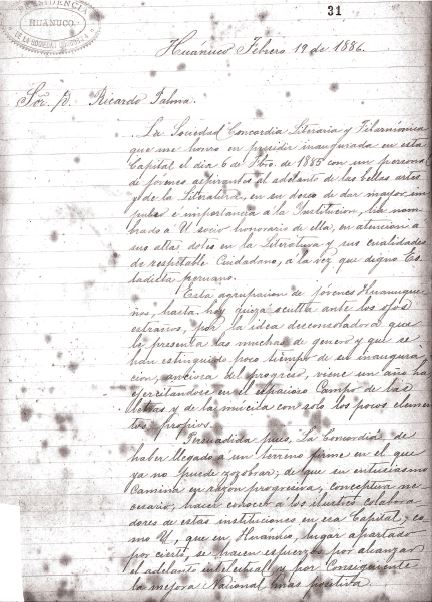 31
PRESIDENCIA
HUANUCO
DE LA SOCIEDAD
Huánuco Febrero 19 de 1886.
Sor. D. Ricardo Palma.
La Sociedad "Concordia Literaria y Filarmónica"
que me honro en presidir inaugurada en esta
Capital el dia 6 de de 1885 con un personal
de jóvenes aspirantes al adelanto de las bellas artes
y de la Literatura, en su deseo de dar mayor im
pulso e importancia a la Institucion, ha nom
brado a U socio honorario de ella, en atencion a
sus altas dotes en la Literatura y sus cualidades
de respetable Ciudadano, a la vez que digno Es
tadista peruano.
Esta agrupacion de jóvenes Huanuque
ños, hasta hoy quiza oculta ante los ojos
estraños, por la idea desconsoladora que
le presenta las muchas de genero y que se
han estinguido poco tiempo de su inaugura
cion, ansiosa del progreso, viene un año ha
ejercitandose en el espacioso Campo de las
letras y de la musica con solo los pocos elemen
tos propios.
Persuadida pues, "La Concordia" de
haber llegado a un terreno firme en el que
ya no puede zozobrar; de que su entusiasmo
camina en razon progresiva, conceptua ne
cesario, hacer conocer a los ilustres colabora
dores de estas instituciones en esa Capital, co
mo U, que en Huánuco, lugar apartado
por cierto, se hacen esfuerzos por alcanzar
el adelanto intelectual y por Consiguiente
la mejora Nacional mas positiva.